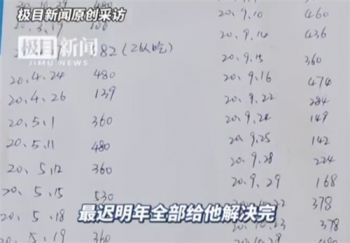 极目新闻原创采访
极目新闻
JIMU NEWS
480
182(2以吃)
20.4.24 480
20.4.26 129
20.5.1 360
20.5.11 480
20.5.12 360
20.5.15 530
20.5.18 360
20.5.19 360
20.9.10 460
20.9.14 436
20.9.15 360
20.9.16 474
20.9.22 284
20.9.24 149
20.9.25 142
20.9.28 224
20.9.29 168
378
378
最迟明年全部给他解决完